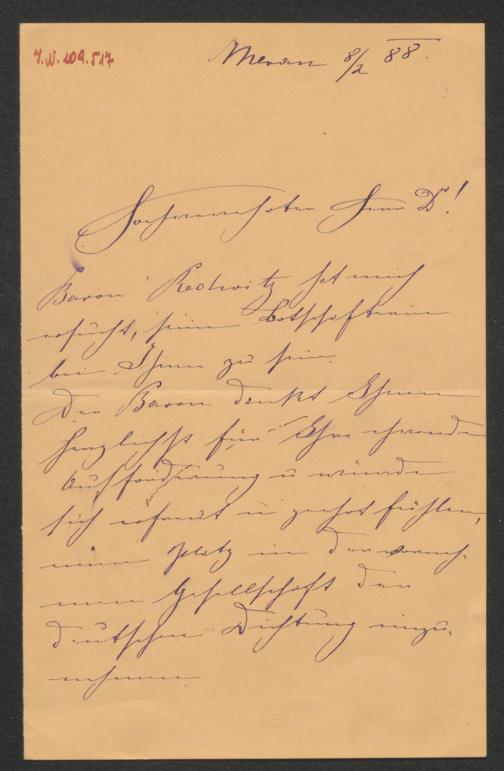 I.N. 109.517
Meran 8/2 88.
Hochverehrter Herr Dr!
Baron Redwitz hat mich
ersucht, seine Botschafterin
bei Ihnen zu sein.
Der Baron dankt Ihnen
herzlichst für Ihre ehrende
Aufforderung u würde
sich erfreut u geehrt fühlen,
einen Platz in der vorneh-
men Gesellschaft der
deutschen Dichtung einzu-
nehmen